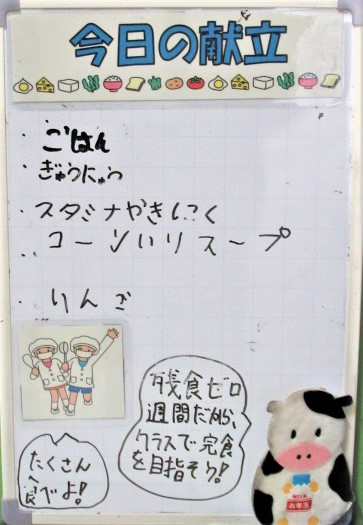 今日の献立
・ごはん
・ぎゅうにゅう
・スタミナやきにく
コーンいりスープ
・りんご
残食ゼロ
週間だから、
クラスで完食
を目指そう!
たくさん
食べよ!
MILK
お年玉